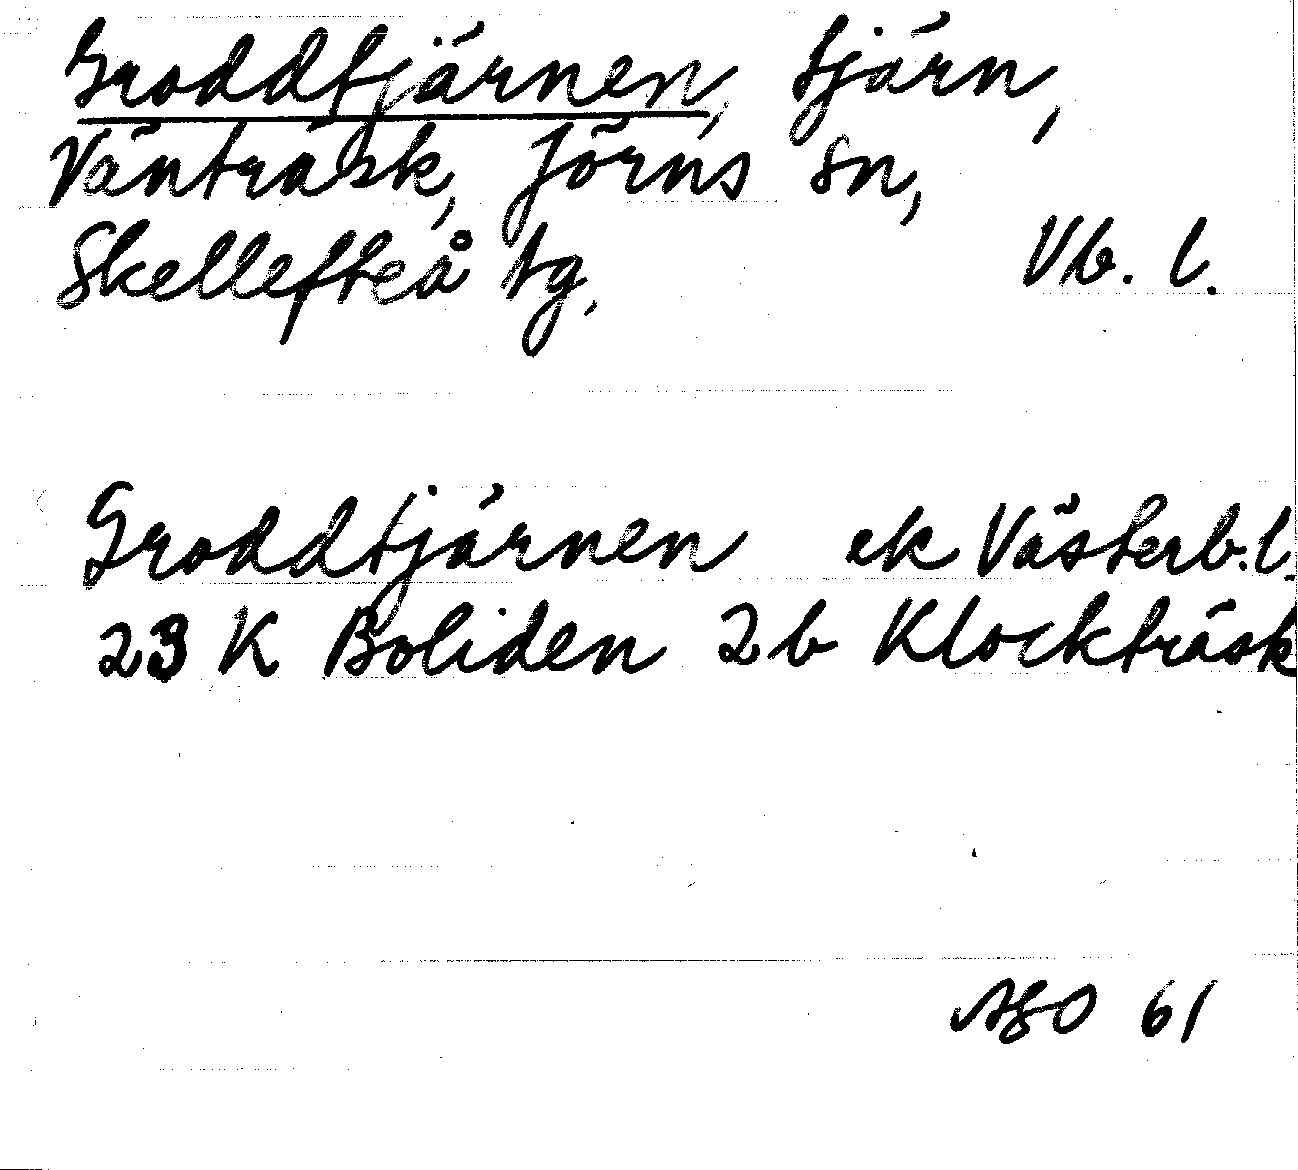 Groddtjärnen, tjärn,
Vänträsk, Jörns sn,
Skellefteå tg, Vb. l.
Groddtjärnen ek Västerb.l.
23 K Boliden 2b Klockträsk
61